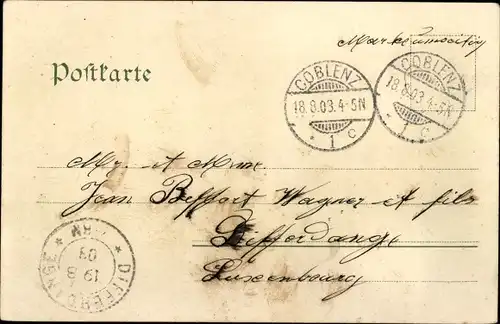 Markenseitig
Postkarte
COBLENZ
18.8.03.4-5N
* 1 c
COBLENZ
18.8.03.4-5N
* 1 c
Mr. et Mme.
Jean Beffort Wagner et fils
Differdange
Luxembourg
DIFFERDANGE
19 8
03